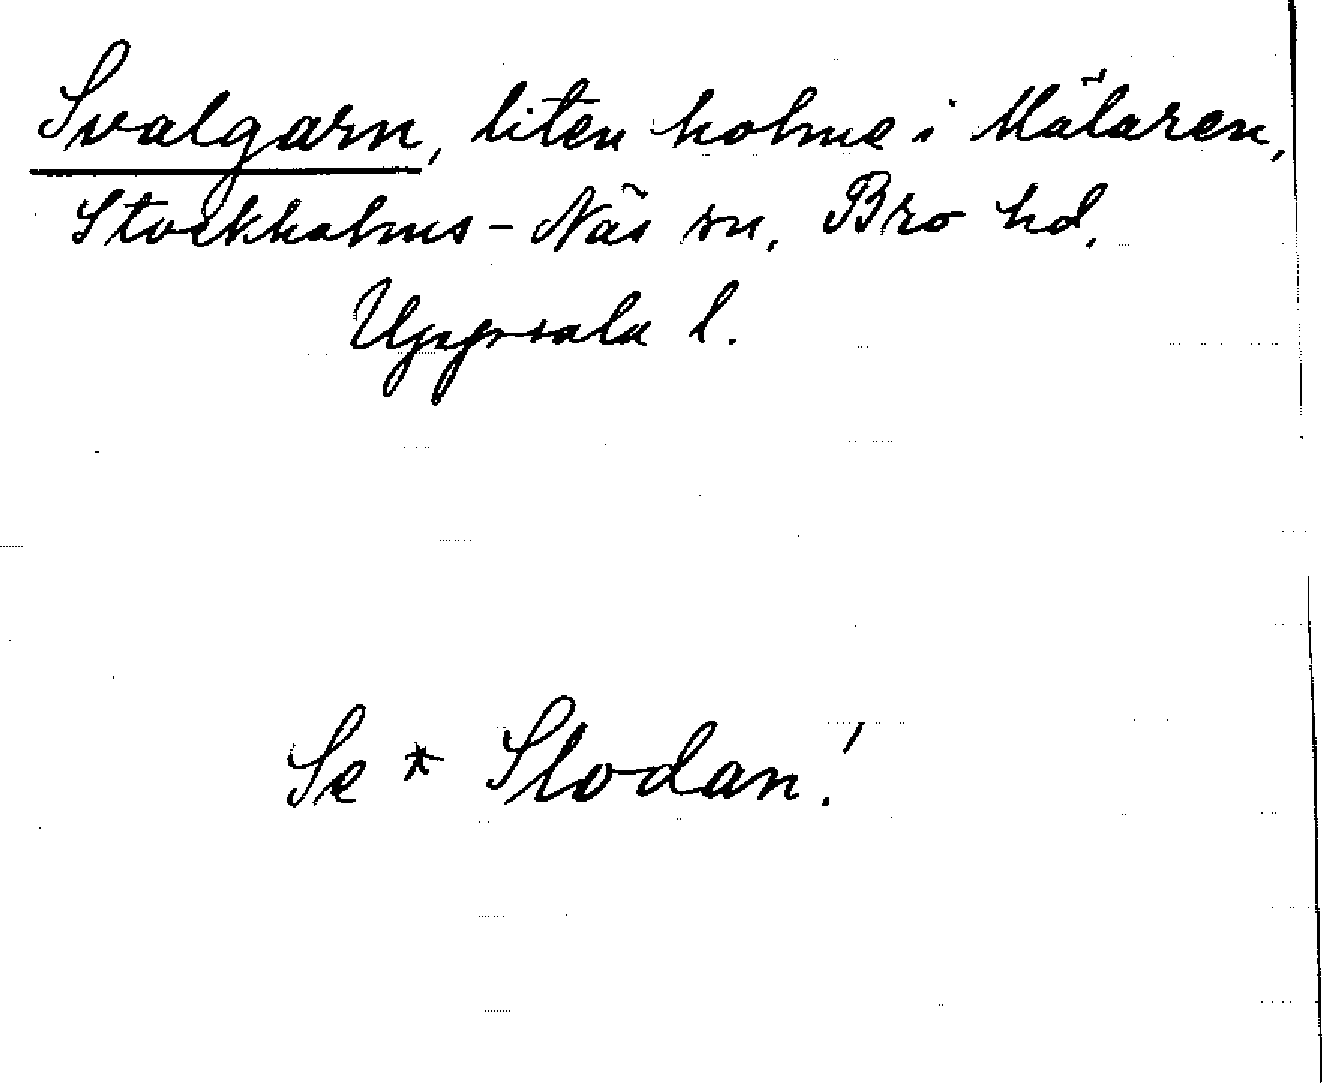 Svalgarn, liten holme i Mälaren,
Stockholms-Näs sn, Bro hd,
Uppsala l.
Se * Slodan!